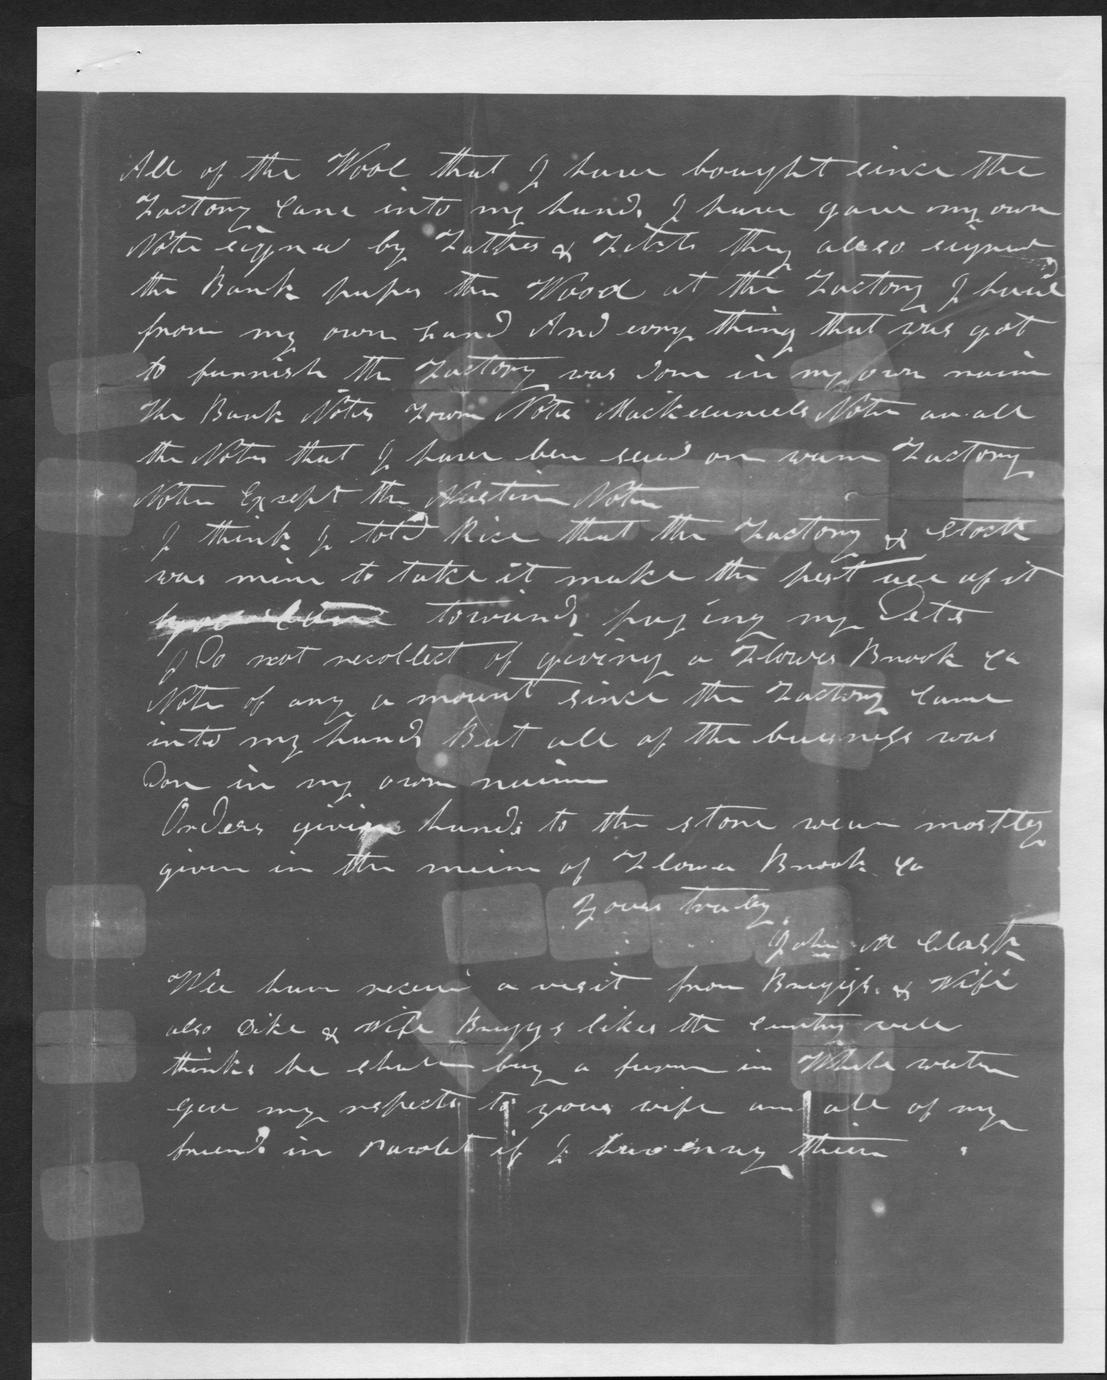 All of the Wool that I have bought since the
Factory Came into my hands I have gave my own
Note signed by Father & Fitch they allso signed
the Bank papers the Wood at the Factory I had
from my own Land And evry thing that was got
to furnish the Factory was done in my own naim
the Bank Notes Town Note Note an all
the Notes that I have ben sued on warn Factory
Notes Except the Austin Note
I think I told Rice that the Factory & Stock
was mine to take it make the best use of it
towards paying my Dets
I Do not recollect of giving a Flower Brook Co
Note of any a mount since the Factory Came
into my hands But all of the buisness was
Don in my own naim
Orders giving hands to the store wear mostley
given in the naim of Flower Brook Co
Yours truley
John M Clark
Wee have receivd a visit from Bruggs. & Wife
also Dike & Wife Bruggs likes the Cuntry well
thinks he shall buy a farm in White water
give my respects to your wife and all of my
friends in Pawlet if I have enny thair